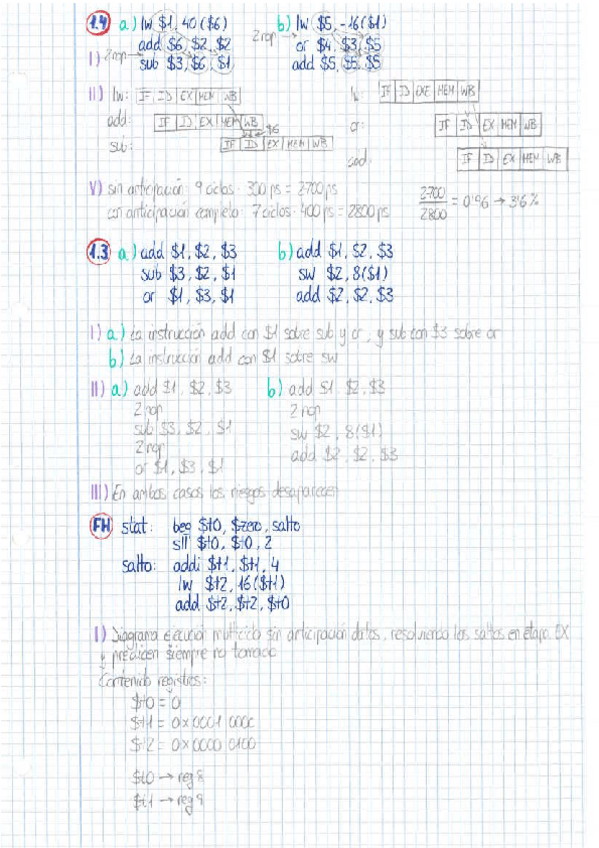 1.4 a) lw $1, 40($6) b) lw $5, -16($1)
add $6, $2, $2 2 nop or $4, $3, $5
I) 2 nop sub $3, $6, $1 add $5, $5, $5
II) lw: IF ID EX MEM WB IF ID EXE MEM WB
add: IF ID EX MEM WB or: IF ID EX MEM WB
$6
sub: IF ID EX MEM WB add: IF ID EX MEM WB
V) sin anticipación: 9 ciclos · 300 ps = 2700 ps
con anticipación completo: 7 ciclos · 400 ps = 2800 ps 2700/2800 = 0'96 → 3'6%
1.3 a) add $1, $2, $3 b) add $1, $2, $3
sub $3, $2, $1 sw $2, 8($1)
or $1, $3, $1 add $2, $2, $3
I) a) La instrucción add con $1 sobre sub y or, y sub con $3 sobre or
b) La instrucción add con $1 sobre sw
II) a) add $1, $2, $3 b) add $1, $2, $3
2 nop 2 nop
sub $3, $2, $1 sw $2, 8($1)
2 nop add $2, $2, $3
or $1, $3, $1
III) En ambos casos los riesgos desaparecen
FH stat: beg $t0, $zero, salto
sll $t0, $t0, 2
salto: addi $t1, $t1, 4
lw $t2, 16($t1)
add $t2, $t2, $t0
I) Diagrama ejecución multiciclo sin anticipación datos, resolviendo los saltos en etapa EX
y predicen siempre no tomado
Contenido registros:
$t0 = 0
$t1 = 0x0001 0000
$t2 = 0x0000 0100
$t0 → reg 8
$t1 → reg 9